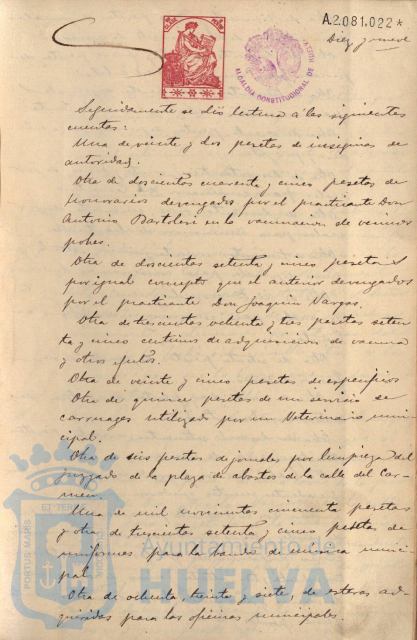 A.2.081.022*
Diez y nueve
ALCALDIA CONSTITUCIONAL DE
Seguidamente se dió lectura a las siguientes
cuentas:
Una de veinte y dos pesetas de insignias de
autoridad.
Otra de doscientos cuarenta y cinco pesetas de
honorarios devengados por el practicante Don
Antonio Bartolesi en la vacunacion de vecinos
pobres.
Otra de doscientas setenta y cinco pesetas
por igual concepto que el anterior devengados
por el practicante Don Joaquin Vargas.
Otra de trescientas ochenta y tres pesetas seten-
ta y cinco centimos de adquisicion de vacuna
y otros efectos.
Otra de veinte y cinco pesetas de especificos
Otra de quince pesetas de un servicio de
carruages utilizado por un Veterinario muni-
cipal.
Otra de seis pesetas de jornales por limpieza del
juzgado de la plaza de abastos de la calle del Car-
men.
Una de mil novecientos cincuenta pesetas
y otra de trescientas setenta y cinco pesetas de
uniformes para la banda de musica munici-
pal.
Otra de ochenta, treinta y siete, de esteras ad-
quiridas para las oficinas municipales.
PORTUS MARIS
Ayuntamiento de
HUELVA